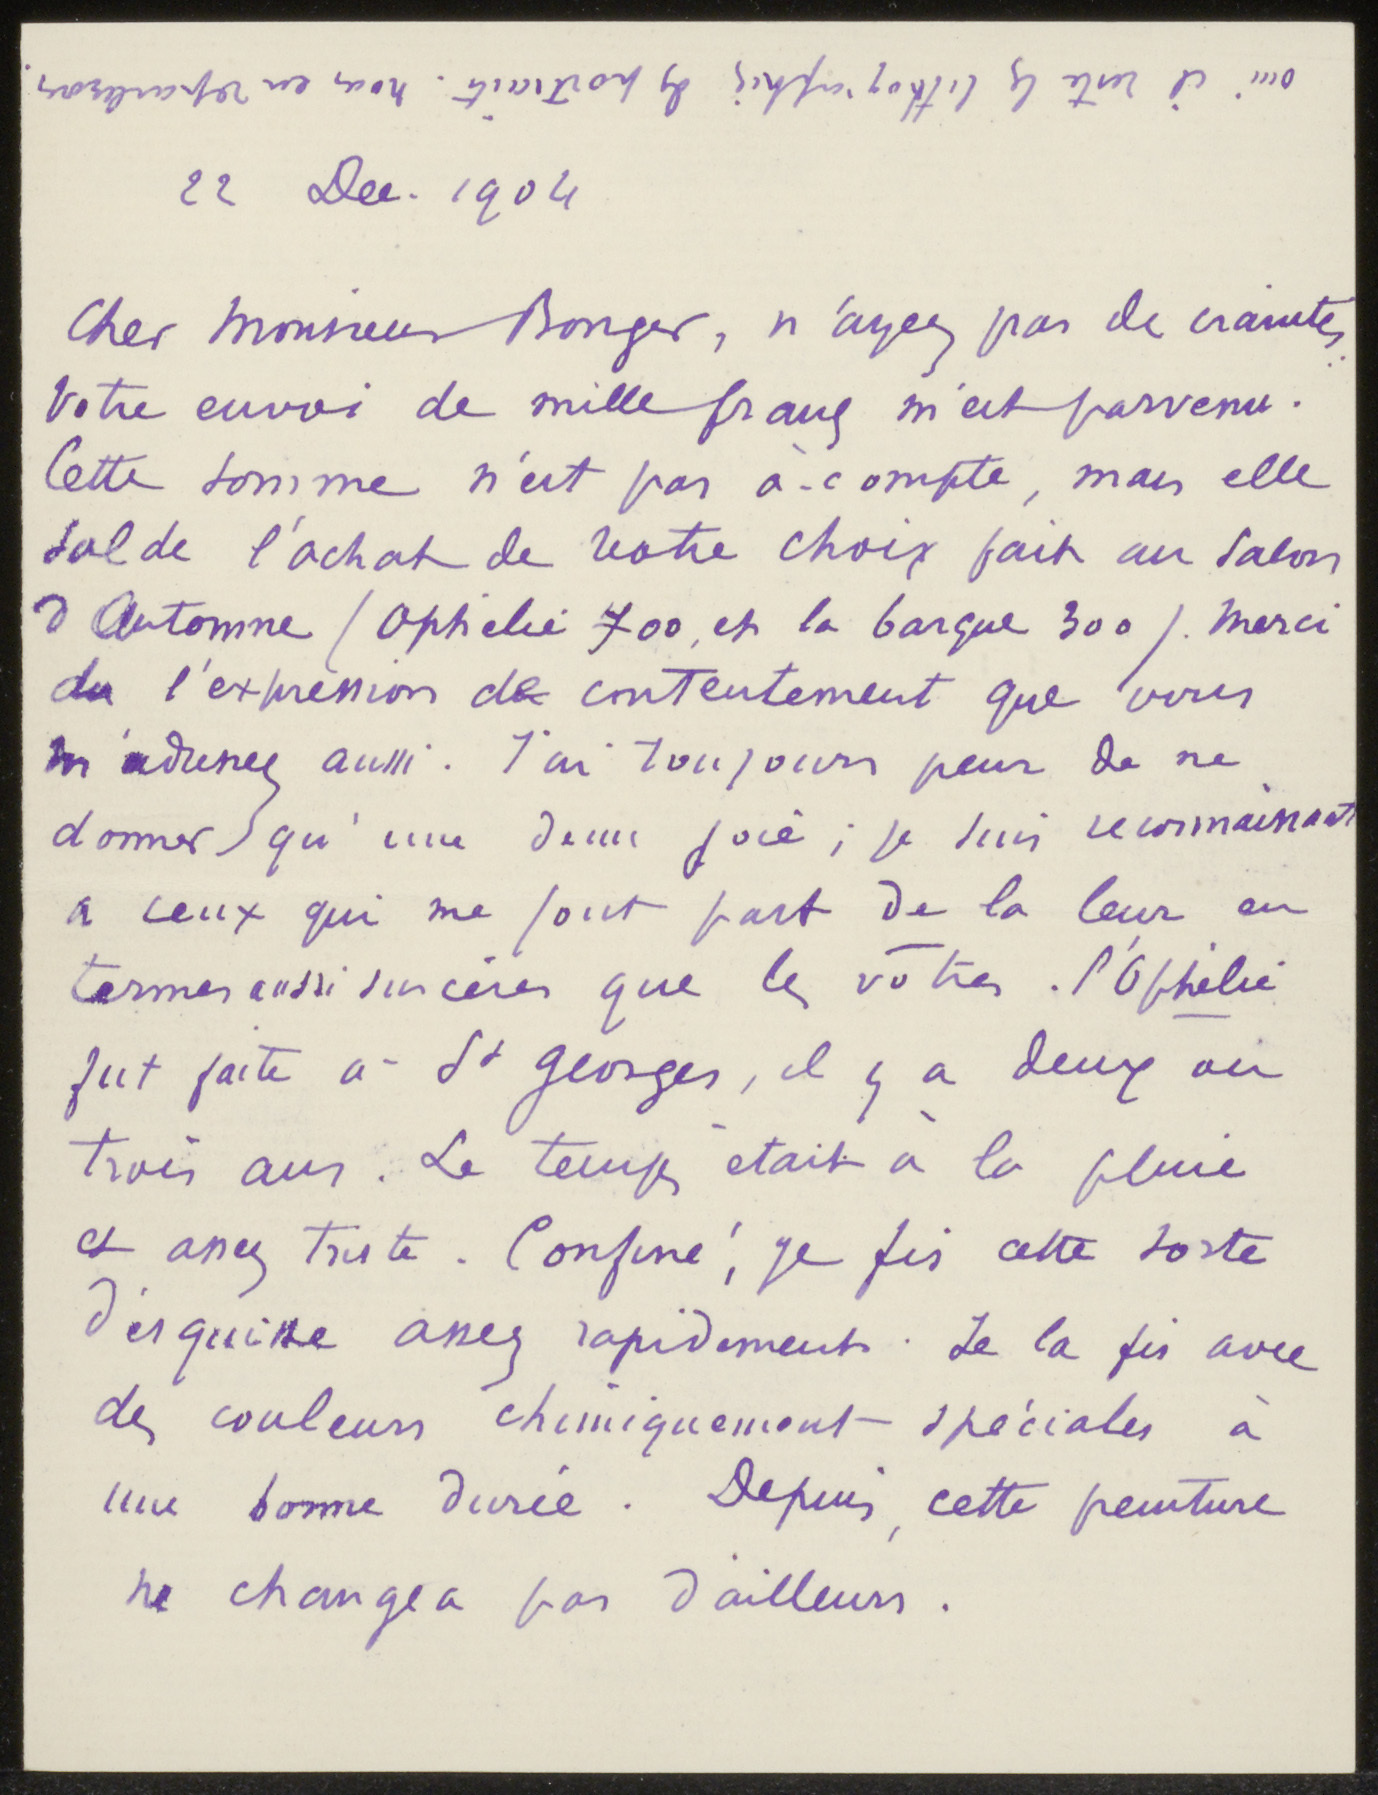 oui il reste les lithographies des portraits. nous en reparlerons.
22 Dec. 1904
Cher Monsieur Bonger, n'ayez pas de craintes:
Votre envoi de mille francs m'est parvenu.
Cette somme n'est pas à-compte, mais elle
solde l'achat de votre choix fait au Salon
d'Automne (Ophélie 700, et la barque 300). Merci
de l'expression de contentement que vous
m'adressez aussi. J'ai toujours peur de ne
donner qu'une demi joie; je suis reconnaissant
à ceux qui me font part de la leur en
termes aussi sincères que les vôtres. l'Ophélie
fut faite à St Georges, il y a deux ou
trois ans. Le temps était à la pluie
et assez triste. Confiné, je fis cette sorte
d'esquisse assez rapidement. Je la fis avec
des couleurs chimiquement spéciales à
une bonne durée. Depuis, cette peinture
ne changea pas d'ailleurs.